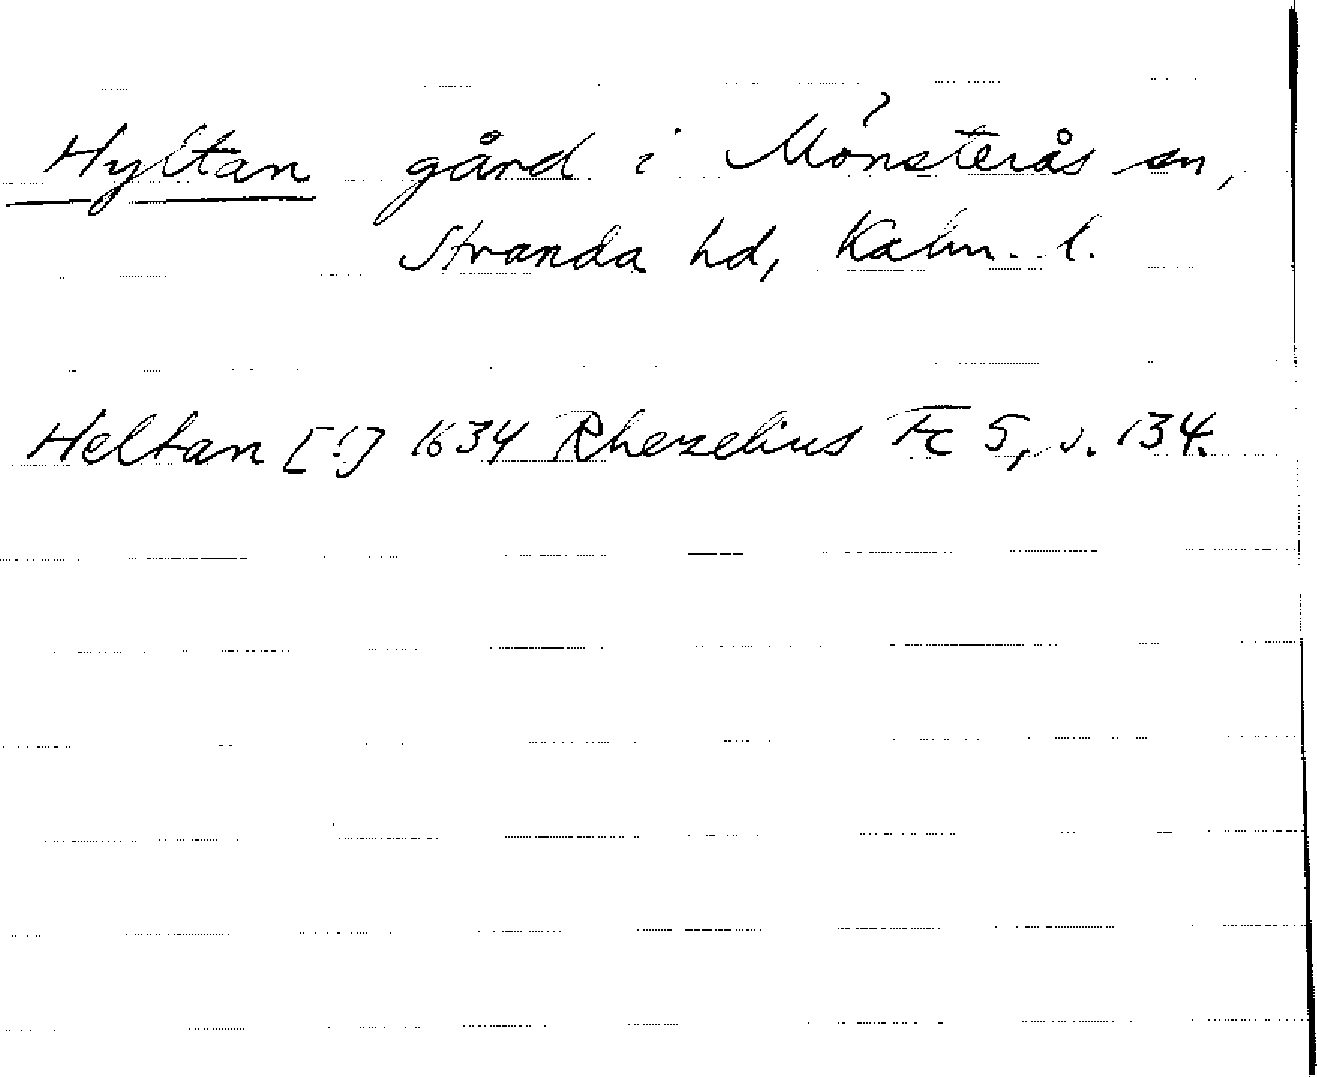 Hyltan gård i Mönsterås sn,
Stranda hd, Kalm. l.
Heltan [!] 1634 Rhezelius Fc 5, s. 134.